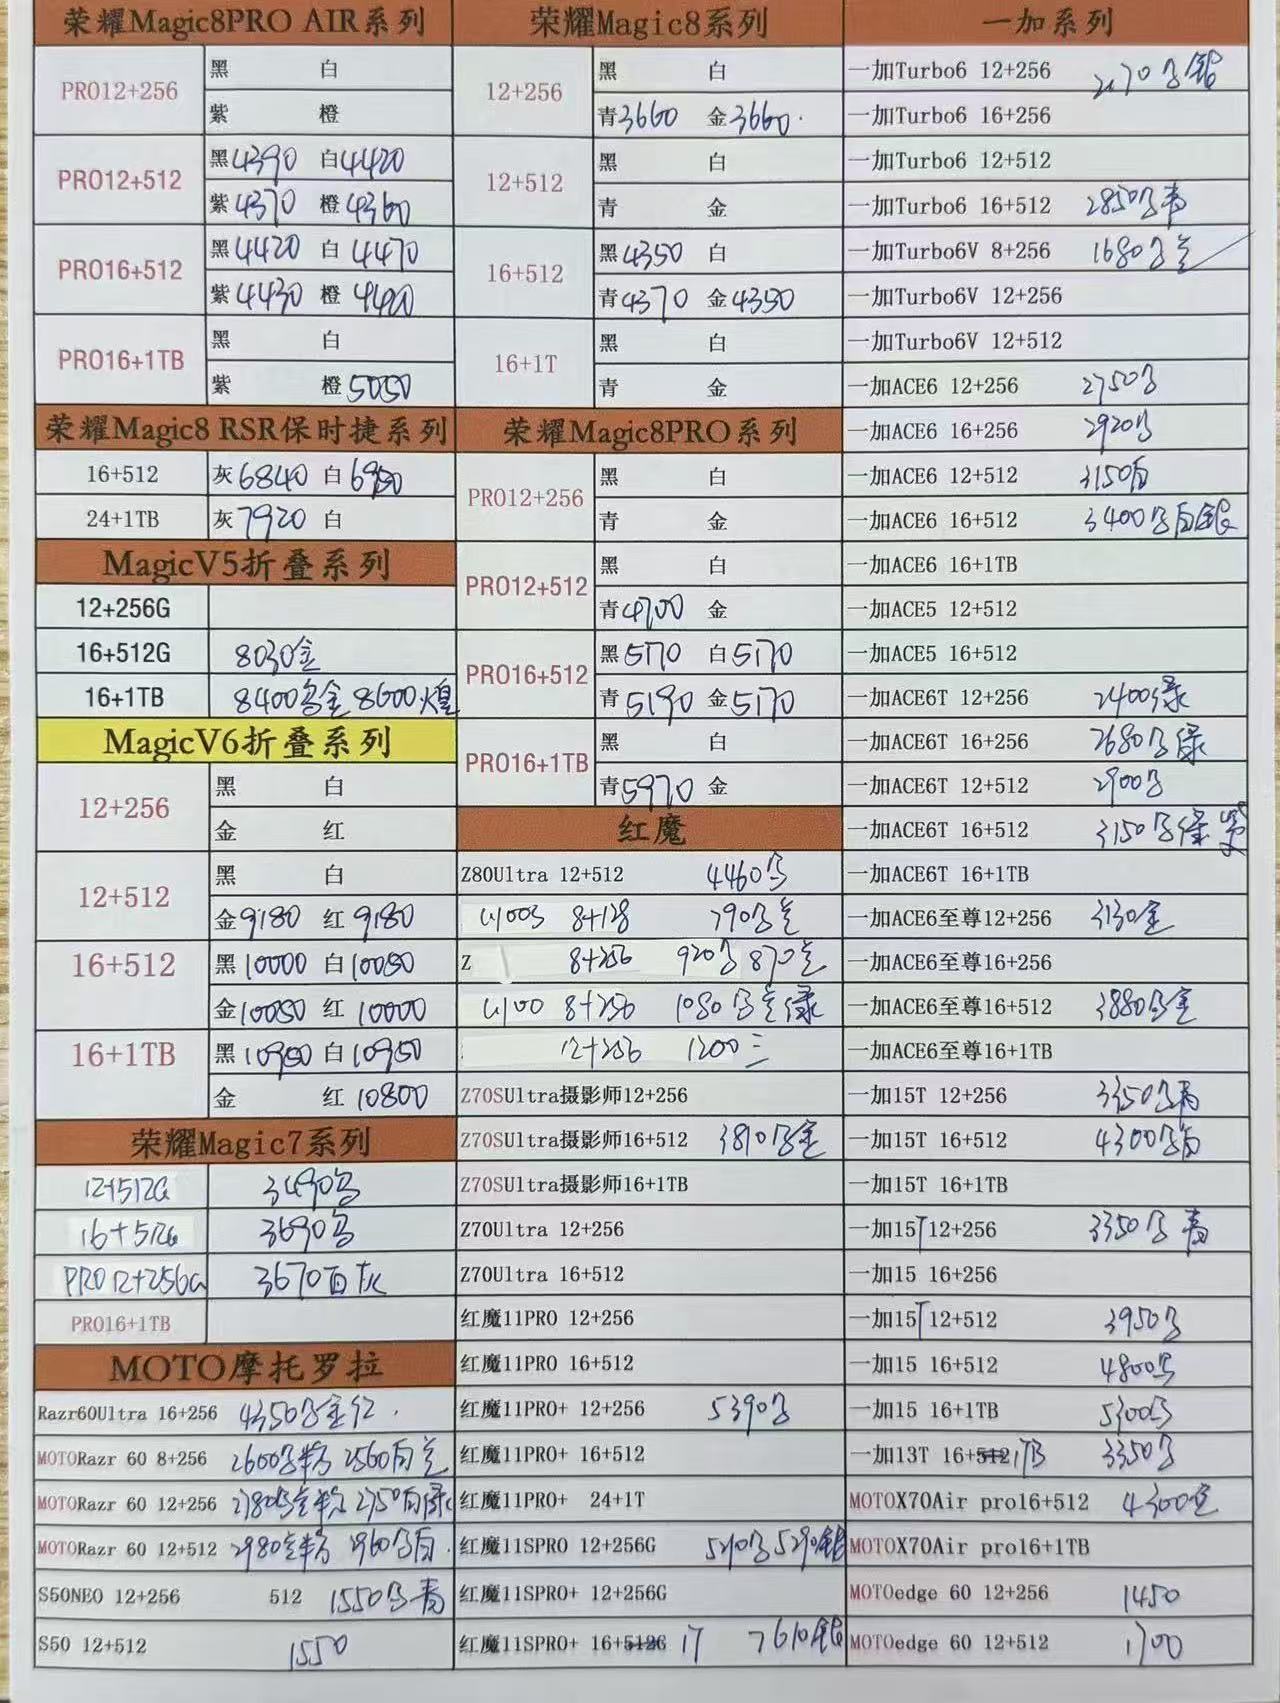 荣耀Magic8PRO AIR系列
PRO12+256
黑 白
紫 橙
PRO12+512
黑4390 白4420
紫4370 橙4360
PRO16+512
黑4420 白4470
紫4430 橙4420
PRO16+1TB
黑 白
紫 橙5050
荣耀Magic8 RSR保时捷系列
16+512 灰6840 白6950
24+1TB 灰7920 白
MagicV5折叠系列
12+256G
16+512G 8030金
16+1TB 8400 金 8600
MagicV6折叠系列
12+256
黑 白
金 红
12+512
黑 白
金9180 红9180
16+512
黑10000 白10050
金10050 红10000
16+1TB
黑10950 白10950
金 红10800
荣耀Magic7系列
12+512G 3490
16+512G 3690
PRO12+256G 3670白灰
PRO16+1TB
MOTO摩托罗拉
Razr60Ultra 16+256 4350 金红
MOTORazr 60 8+256 2600 2560白兰
MOTORazr 60 12+256 2780 2750白绿
MOTORazr 60 12+512 2980 2960 白
S50NEO 12+256 512 1550 青
S50 12+512 1550
荣耀Magic8系列
12+256
黑 白
青3660 金3660
12+512
黑 白
青 金
16+512
黑4350 白
青4370 金4350
16+1T
黑 白
青 金
荣耀Magic8PRO系列
PRO12+256
黑 白
青 金
PRO12+512
黑 白
青4700 金
PRO16+512
黑5170 白5170
青5190 金5170
PRO16+1TB
黑 白
青5970 金
红魔
Z80Ultra 12+512 4460
8+128 790 兰
Z 8+256 920 870兰
8+256 1080 兰绿
12+256 1200三
Z70SUltra摄影师12+256
Z70SUltra摄影师16+512 3810 金
Z70SUltra摄影师16+1TB
Z70Ultra 12+256
Z70Ultra 16+512
红魔11PRO 12+256
红魔11PRO 16+512
红魔11PRO+ 12+256 5390
红魔11PRO+ 16+512
红魔11PRO+ 24+1T
红魔11SPRO 12+256G 5290 5290银
红魔11SPRO+ 12+256G
红魔11SPRO+ 16+512G 1T 7610银
一加系列
一加Turbo6 12+256 银
一加Turbo6 16+256
一加Turbo6 12+512
一加Turbo6 16+512 2850 青
一加Turbo6V 8+256 1680 兰
一加Turbo6V 12+256
一加Turbo6V 12+512
一加ACE6 12+256 2750
一加ACE6 16+256 2920
一加ACE6 12+512 3150白
一加ACE6 16+512 3400 白银
一加ACE6 16+1TB
一加ACE5 12+512
一加ACE5 16+512
一加ACE6T 12+256 2400绿
一加ACE6T 16+256 2680 绿
一加ACE6T 12+512 2900
一加ACE6T 16+512 3150 绿 紫
一加ACE6T 16+1TB
一加ACE6至尊12+256 3130金
一加ACE6至尊16+256
一加ACE6至尊16+512 3880 金
一加ACE6至尊16+1TB
一加15T 12+256 3350 青
一加15T 16+512 4300 白
一加15T 16+1TB
一加15T 12+256 3350 青
一加15 16+256
一加15T 12+512 3950
一加15 16+512 4800
一加15 16+1TB 5300
一加13T 16+512 1TB 3350
MOTOX70Air pro16+512 4300金
MOTOX70Air pro16+1TB
MOTOedge 60 12+256 1450
MOTOedge 60 12+512 1700